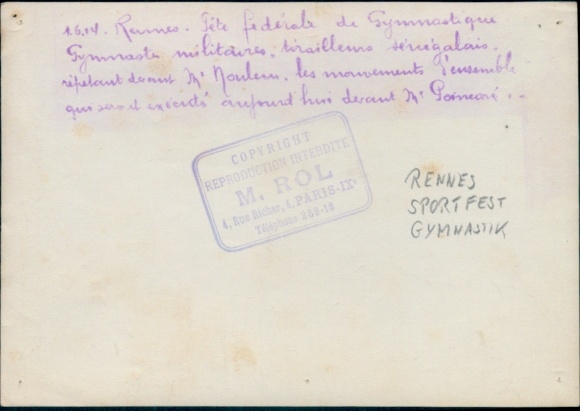 1.6.14. Rennes. Fête fédérale de Gymnastique
Gymnastes militaires, tirailleurs sénégalais,
répétant devant Mr Moulens, les mouvements d'ensemble
qui seront exécutés aujourd'hui devant Mr Poincaré.
COPYRIGHT
REPRODUCTION INTERDITE
M. ROL
4, Rue Richer, 4, PARIS-IXe
Téléphone 289-18
RENNES
SPORTFEST
GYMNASTIK